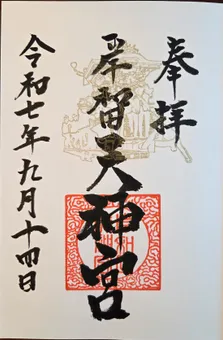 奉拝
岸智里天神宮
令和七年九月十四日